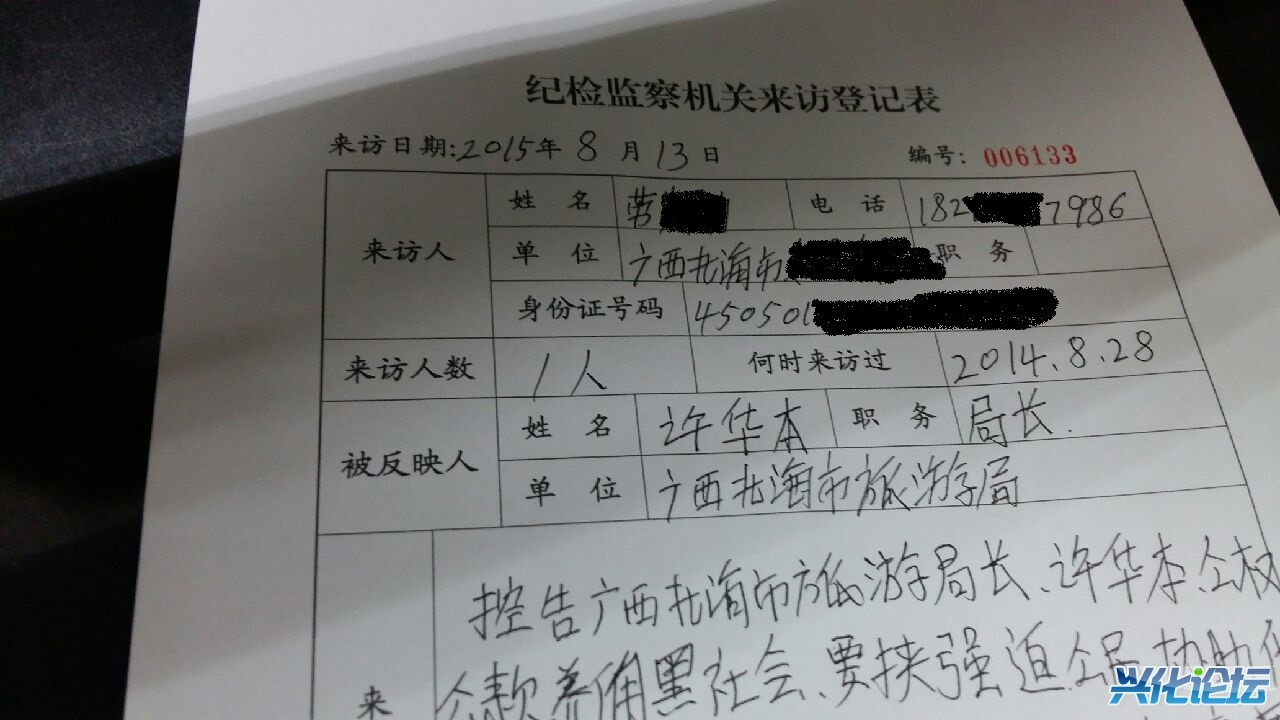 纪检监察机关来访登记表
来访日期:2015年8月13日 编号: 006133
来访人 姓名 劳 电话 182 7986
单位 广西北海市 职务
身份证号码 450501
来访人数 1人 何时来访过 2014.8.28
被反映人 姓名 许华本 职务 局长.
单位 广西北海市旅游局
控告广西北海市旅游局长、许华本、公权
来 公款养佣黑社会、要挟强迫公民协助
兴化论坛